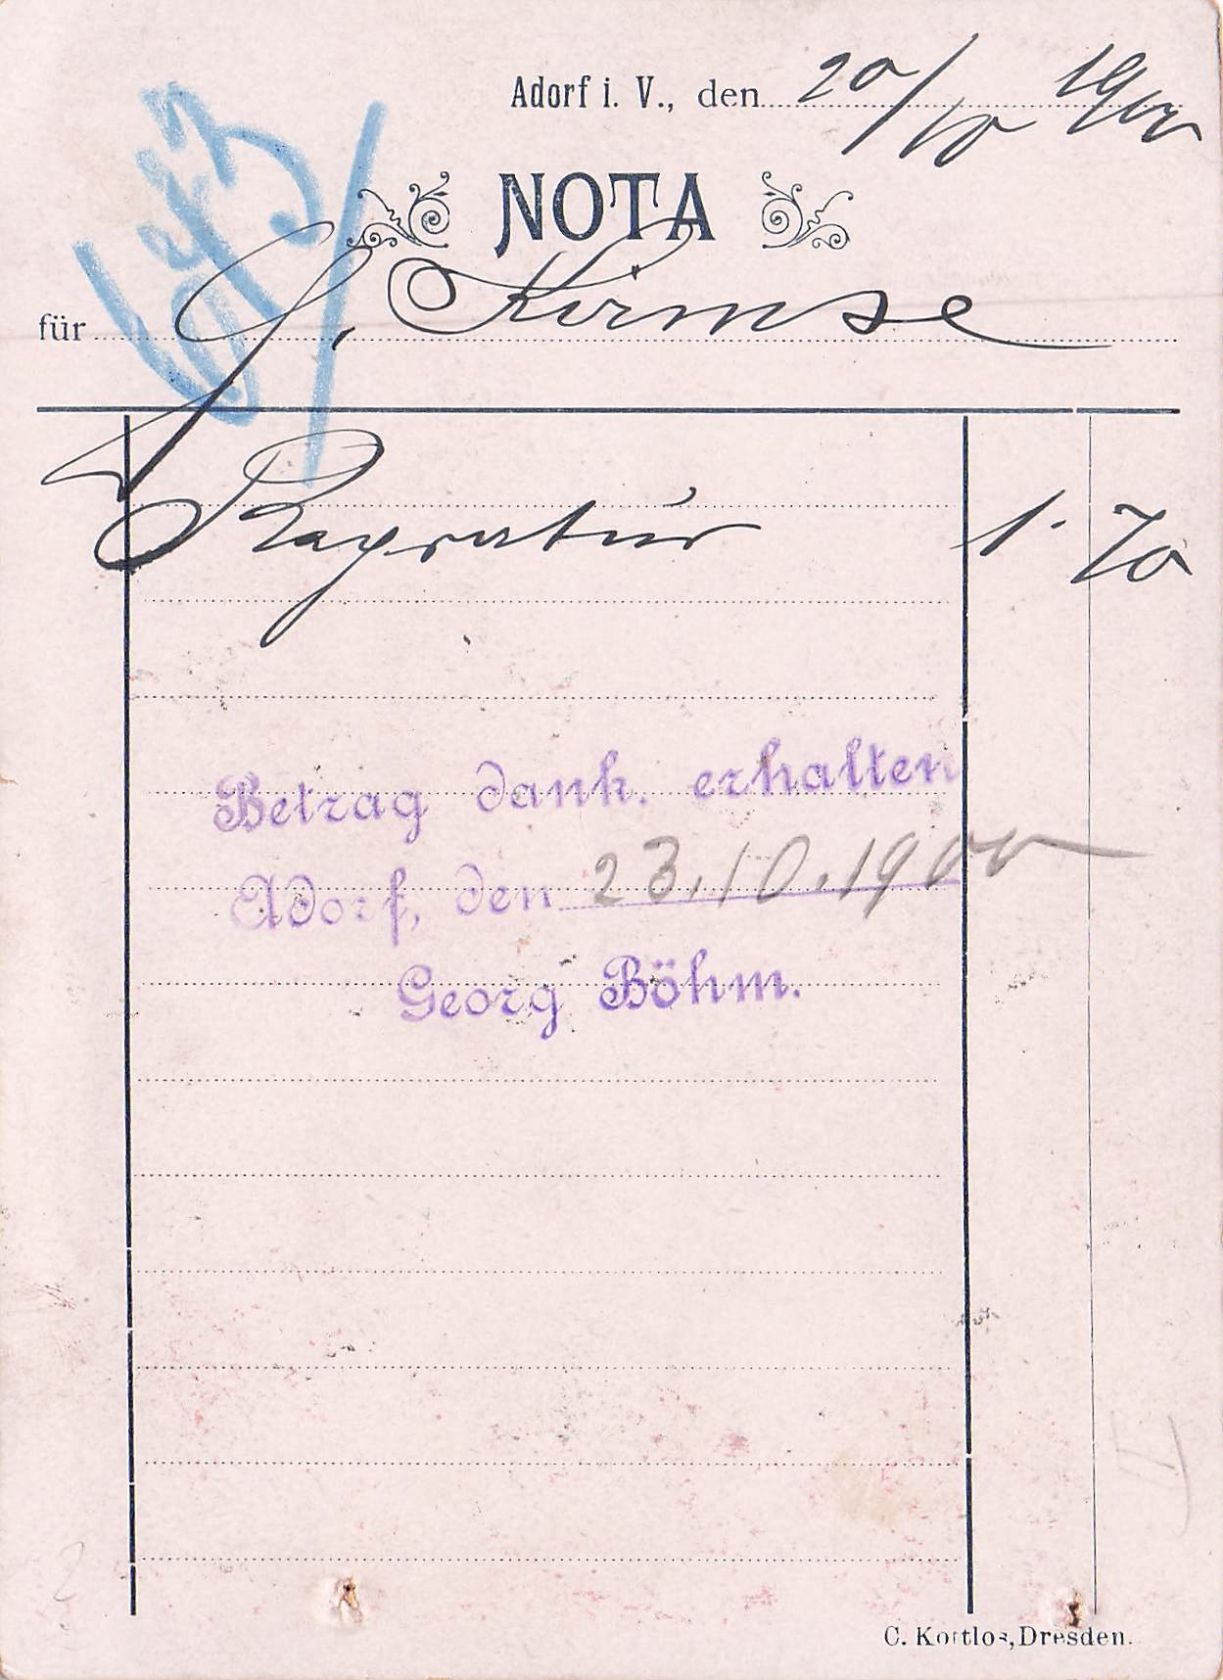 Adorf i. V., den 20/10 1900
NOTA
für G. Kirmse
Repratur 1. 70
Betrag dank. erhalten
Adorf, den 23.10.1900
Georg Böhm.
C. Kortlos, Dresden.